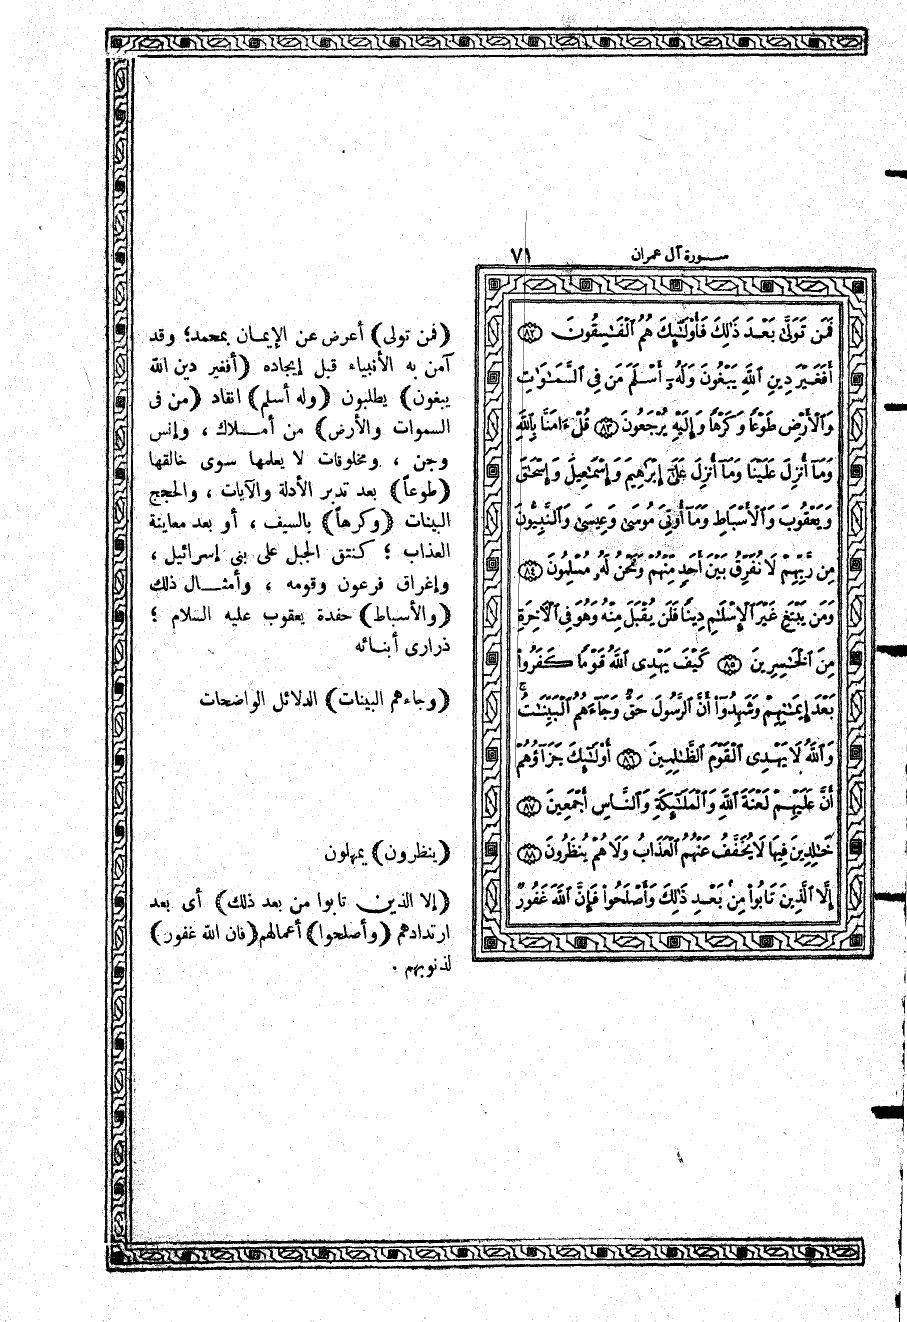 سورة آل عمران
٧١
فَمَن تَوَلَّىٰ بَعْدَ ذَٰلِكَ فَأُو۟لَٰٓئِكَ هُمُ ٱلْفَٰسِقُونَ ٨٢
أَفَغَيْرَ دِينِ ٱللَّهِ يَبْغُونَ وَلَهُۥٓ أَسْلَمَ مَن فِى ٱلسَّمَٰوَٰتِ
وَٱلْأَرْضِ طَوْعًا وَكَرْهًا وَإِلَيْهِ يُرْجَعُونَ ٨٣ قُلْ ءَامَنَّا بِٱللَّهِ
وَمَآ أُنزِلَ عَلَيْنَا وَمَآ أُنزِلَ عَلَىٰٓ إِبْرَٰهِيمَ وَإِسْمَٰعِيلَ وَإِسْحَٰقَ
وَيَعْقُوبَ وَٱلْأَسْبَاطِ وَمَآ أُوتِىَ مُوسَىٰ وَعِيسَىٰ وَٱلنَّبِيُّونَ
مِن رَّبِّهِمْ لَا نُفَرِّقُ بَيْنَ أَحَدٍ مِّنْهُمْ وَنَحْنُ لَهُۥ مُسْلِمُونَ ٨٤
وَمَن يَبْتَغِ غَيْرَ ٱلْإِسْلَٰمِ دِينًا فَلَن يُقْبَلَ مِنْهُ وَهُوَ فِى ٱلْءَاخِرَةِ
مِنَ ٱلْخَٰسِرِينَ ٨٥ كَيْفَ يَهْدِى ٱللَّهُ قَوْمًا كَفَرُوا۟
بَعْدَ إِيمَٰنِهِمْ وَشَهِدُوٓا۟ أَنَّ ٱلرَّسُولَ حَقٌّ وَجَآءَهُمُ ٱلْبَيِّنَٰتُ ۚ
وَٱللَّهُ لَا يَهْدِى ٱلْقَوْمَ ٱلظَّٰلِمِينَ ٨٦ أُو۟لَٰٓئِكَ جَزَآؤُهُمْ
أَنَّ عَلَيْهِمْ لَعْنَةَ ٱللَّهِ وَٱلْمَلَٰٓئِكَةِ وَٱلنَّاسِ أَجْمَعِينَ ٨٧
خَٰلِدِينَ فِيهَا لَا يُخَفَّفُ عَنْهُمُ ٱلْعَذَابُ وَلَا هُمْ يُنظَرُونَ ٨٨
إِلَّا ٱلَّذِينَ تَابُوا۟ مِنۢ بَعْدِ ذَٰلِكَ وَأَصْلَحُوا۟ فَإِنَّ ٱللَّهَ غَفُورٌ
(فمن تولى) أعرض عن الإيمان بمحمد؛ وقد
آمن به الأنبياء قبل إيجاده (أفغير دين الله
يبغون) يطلبون (وله أسلم) انقاد (من فى
السموات والأرض) من أملاك ، وإنس
وجن ، ومخلوقات لا يعلمها سوى خالقها
(طوعاً) بعد تدبر الأدلة والآيات ، والحجج
البينات (وكرهاً) بالسيف ، أو بعد معاينة
العذاب ؛ كنتق الجبل على بنى إسرائيل ،
وإغراق فرعون وقومه ، وأمثال ذلك
(والأسباط) حفدة يعقوب عليه السلام ؛
ذرارى أبنائه
(وجاءهم البينات) الدلائل الواضحات
(ينظرون) يمهلون
(إلا الذين تابوا من بعد ذلك) أى بعد
ارتدادهم (وأصلحوا) أعمالهم (فان الله غفور)
لذنوبهم .